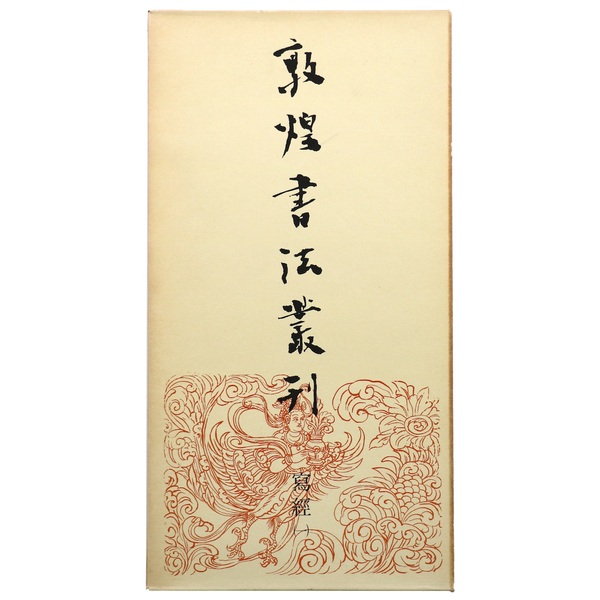 敦煌書法叢刊
寫經(一)